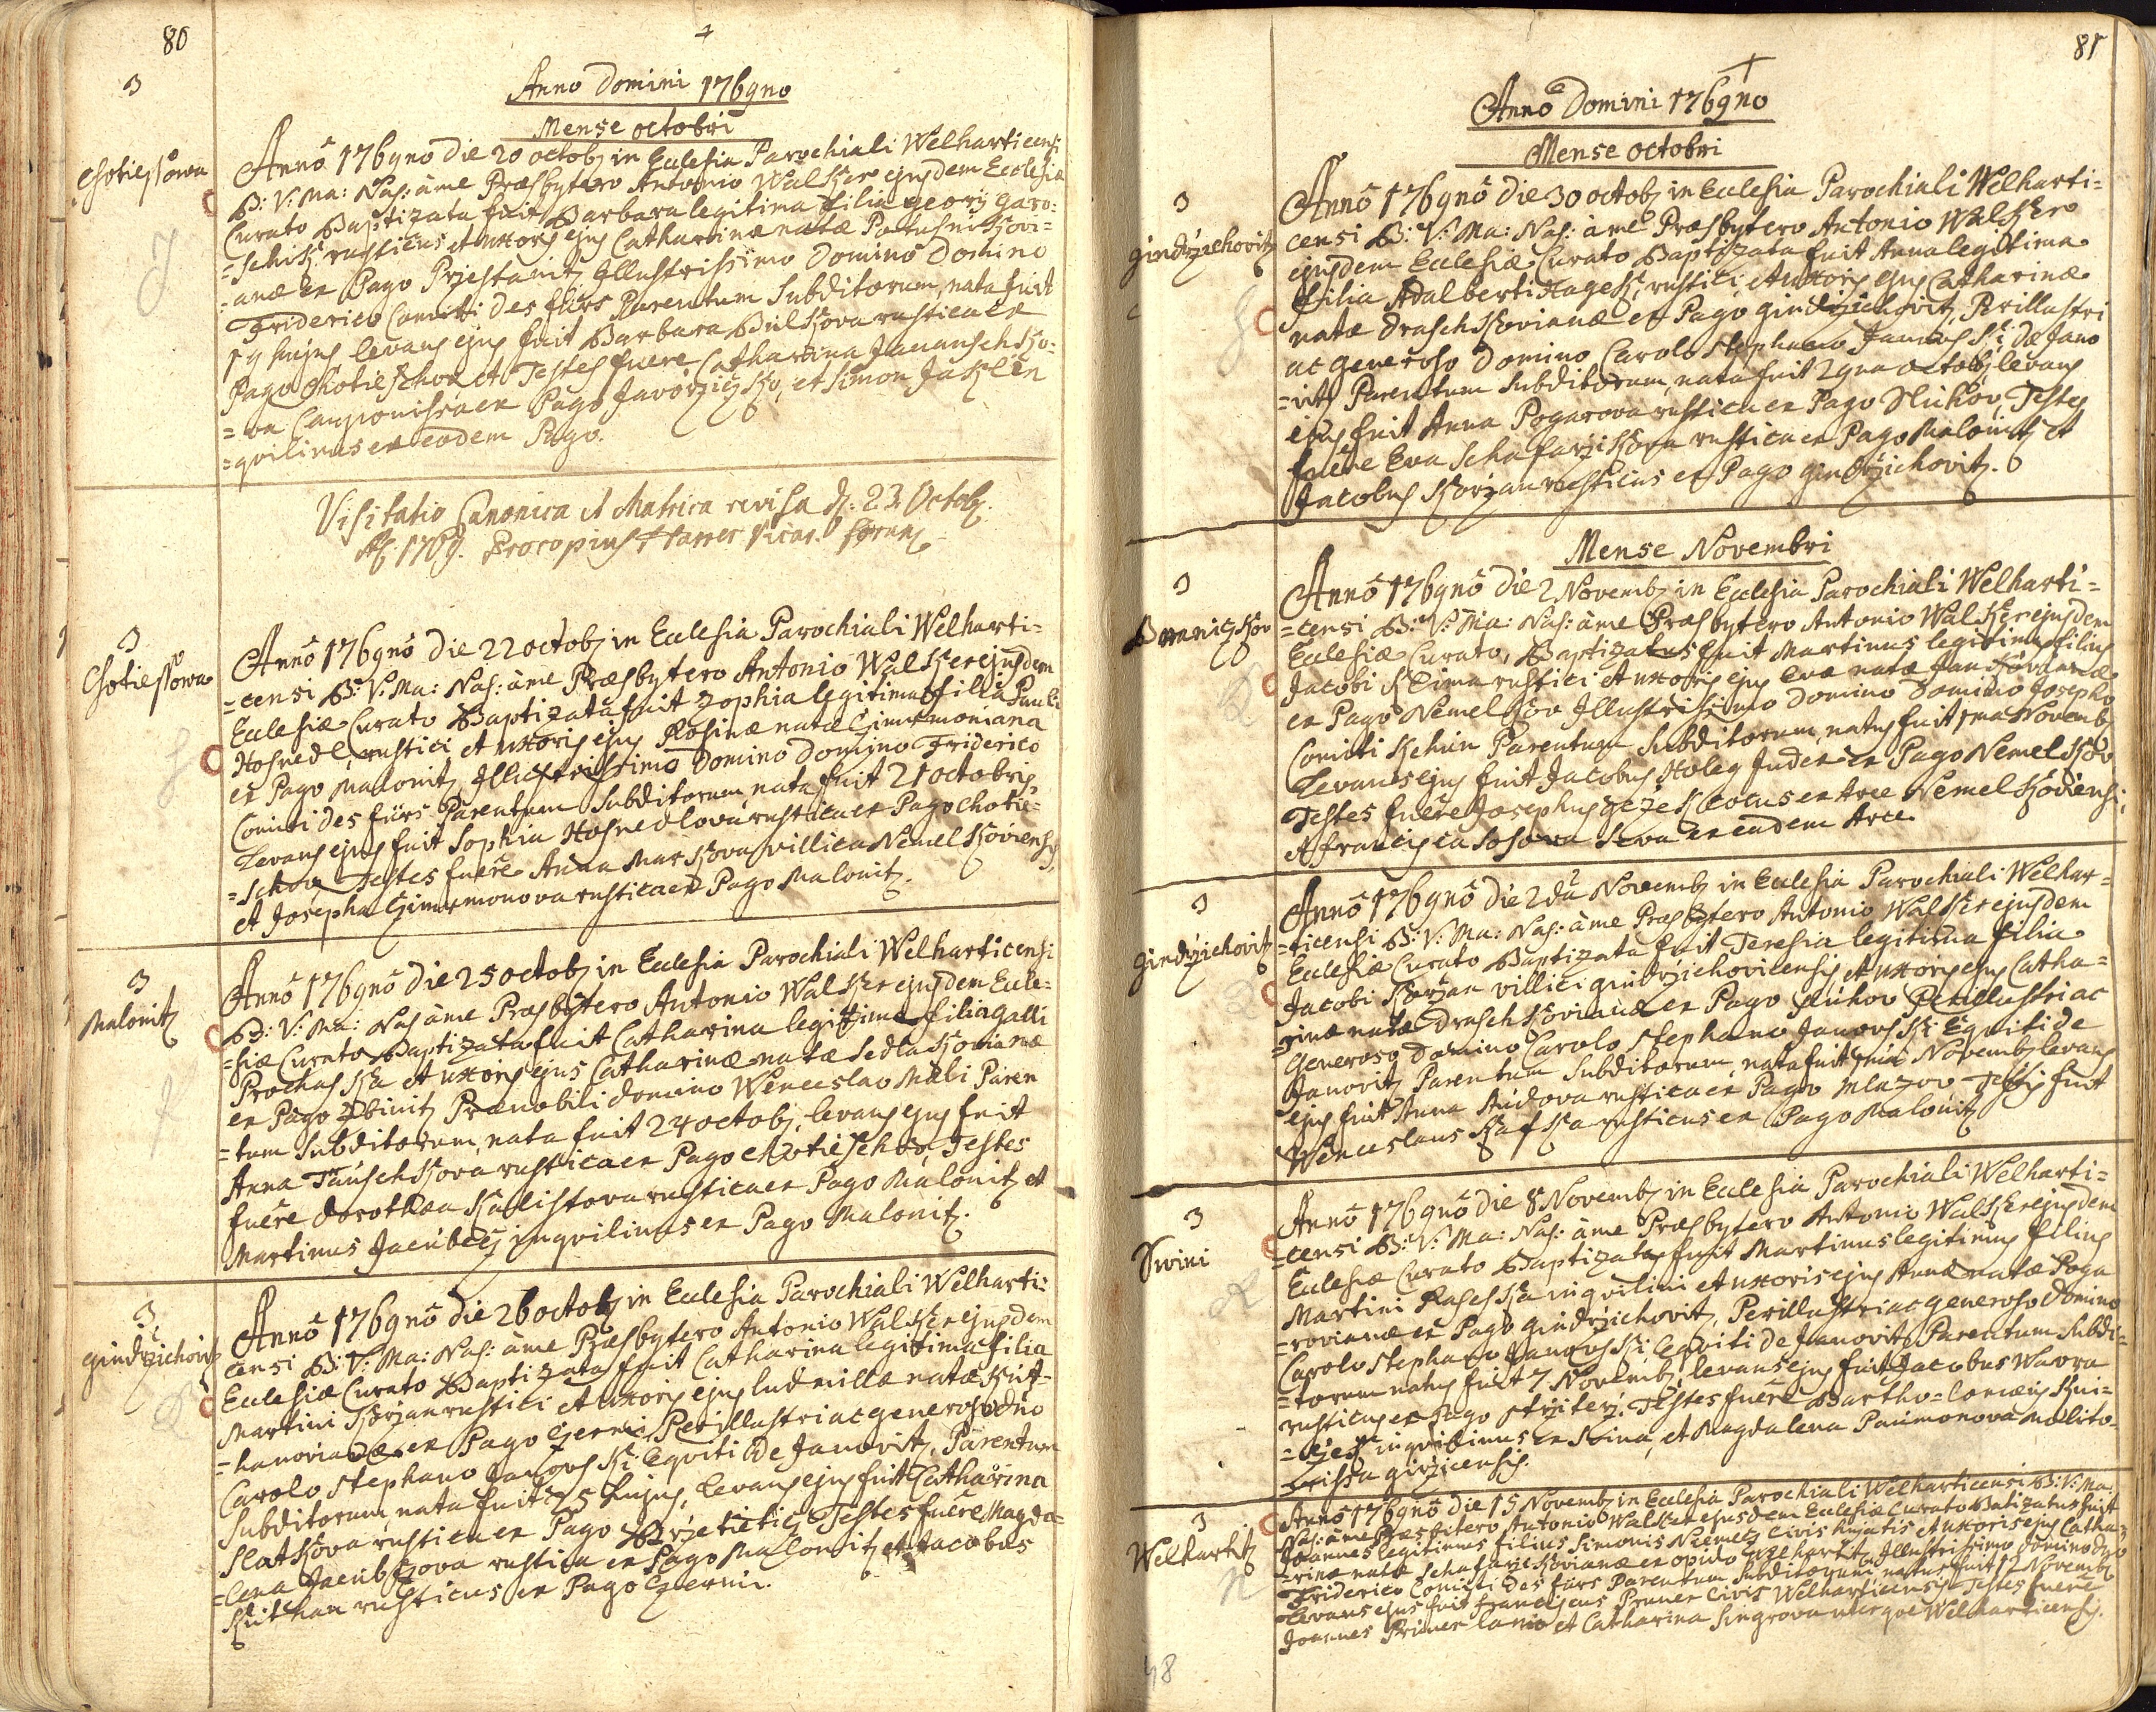 80
Anno Domini 1769no
Mense octobri
3
Chotiessowa
Annô 1769no die 20 octob in Ecclesia Parochiali Welharticensi
B: V: Ma: Nas: àme Præsbytero Antonio Walkzer ejusdem Ecclesiæ
Curato Baptizata fuit Barbara legitima filia georij Garo=
=schik rusticus et uxoris ejus Catharinæ natæ
=anæ ex Pago Przestanitz Illustrissimo Domino Domino
Friderico Comitti des fürs Parentum Subditorum, nata fuit
19 hujus levans ejus fuit Barbara Bulkzova rustica ex
Pago Chotieschov et Testes fuere Catharina
=va Caupponissa ex Pago et Simon Jaklin
=qvilinus ex eodem Pago.
Visitatio Canonica et Matrica revisa d. 23 Octob.
1769. Procopius Harrer Vicar. foran.
3
Chotiessowa
Annô 1769nô die 22 octob in Ecclesia Parochiali Welharti=
=censi B: V: Ma: Nas: àme Præsbytero Antonio Walkzer ejusdem
Ecclesiæ Curato Baptizata fuit Zophia legitima filia Pauli
Hosnedl, rustici et uxoris ejus Rosinæ natæ Czimermoniana
ex Pago Malonitz, Illustrissimo Domino Domino Friderico
Comitti des fürs Parentum Subditorum nata fuit 21 octobris
Levans ejus fuit Sophia Hosnedlova rustica ex Pago chotie=
=schov, Testes fuere Anna Markzova villica Nemelkzoviensis
et Josepha Czimermonova rustica ex Pago Malonitz.
3
Malonitz
Annô 1769nô die 25 octob in Ecclesia Parochiali Welharticensi
B: V: Ma: Nas àme Præsbytero Antonio Walkzer ejusdem Eccle=
=siæ Curato Baptizata fuit Catharina legitima filia galli
Prochaskza et uxoris ejus Catharinæ natæ Sedlakzovianæ
ex Pago Zbinitz Prænobili domino Wenceslao Mali Paren
=tum Subditorum, nata fuit 24 octob, levans ejus fuit
Anna Tauschkzova rustica ex Pago chotieschov, Testes
fuere dorothæa Kzalistova rustica ex Pago Malonitz et
Martinus Jacubecz inqvilinus ex Pago Malonitz.
3
gindrzichovitz
Annô 1769nô die 26 octob in Ecclesia Parochiali Welharti=
censi B: V: Ma: Nas: àme Præsbytero Antonio Walkzer ejusdem
Ecclesiæ Curato Baptizata fuit Catharina legitima filia
Martini Korzan rustici et uxoris ejus ludmillæ natæ Kzut=
=hanovianæ ex Pago Czerni, Perillustri ac generoso dno
Carolo Stephano Janovski: Eqviti de Janovitz, Parentum
Subditorum, nata fuit 25 hujus, levans ejus fuit Catharina
Slatkzova rustica ex Pago Brzetieticz Testes fuere Magda=
=lena Jacubkzova rustica ex Pago Mallonitz et Jacobus
Kzuthan rusticus ex Pago Czerni.
81
Annô Domini 1769no
Mense octobri
3
gindrzichovitz
Annô 1769nô die 30 octob, in Ecclesia Parochiali Welharti=
censi B: V: Ma: Nas: àme Præsbytero Antonio Walkzero
ejusdem Ecclesiæ Curato Baptizata fuit Anna legitima
filia Adalberti Hagek, rustici et uxoris ejus Catharinæ
natæ draschkzovianæ ex Pago gindrzichovitz, Perillustri
ac generoso Domino Carolo Stephano Janovski de Jano
=vitz Parentum Subditorum, nata fuit 29na octob, levans
ejus fuit Anna Pogarova rustica ex Pago Hluhov, Testes
fuere Eva Schafarzikzova rustica ex Pago Malonitz et
Jacobus Korzan rusticus ex Pago gindrzichovitz.
Mense Novembri
3
Annô 1769nô die 2 Novemb in Ecclesia Parochiali Welharti=
=censi B: V: Ma: Nas: àme Præsbytero Antonio Walkzer ejusdem
Ecclesiæ Curato, Baptizatus fuit Martinus legitimus filius
Jacobi Klima rustici et uxoris ejus Evæ natæ
ex Pago Nemelkzov Illustrissimo Domino Domino Josepho
Comitti Parentum Subditorum, natus fuit 1ma Novemb
Levans ejus fuit Jacobus Holeg Judex ex Pago Nemelkzov
Testes fuere Josephus cocus ex Arce Nemelkzoviensi,
et francisca Sosova ex eadem Arce.
3
gindrzichovitz
Annô 1769nô die 2da Novemb in Ecclesia Parochiali Welhar=
=ticensi B: V: Ma: Nas: àme Præsbytero Antonio Walkzer ejusdem
Ecclesiæ Curato Baptizata fuit Teresia legitima filia
Jacobi Korzan villici gindrzichovicensis et uxoris ejus Catha=
=rinæ natæ Draschkzovianæ ex Pago Hluhov Perillustri ac
Generoso Domino Carolo Stephano Janovski: Eqviti de
Janovitz Parentum Subditorum, nata fuit 1ma Novemb levans
ejus fuit Anna rustica ex Pago Mlazov Testis fuit
Wenceslaus Kzafkza rusticus ex Pago Malonitz
3
Swini
Annô 1769nô die 8 Novemb in Ecclesia Parochiali Welharti=
=censi B: V: Ma: Nas: àme Præsbytero Antonio Walkzer ejusdem
Ecclesiæ Curato Baptizatus fuit Martinus legitimus filius
Martini inqvilini et uxoris ejus Annæ natæ Poga
=rovianæ ex Pago gindrzichovitz, Perillustri ac generoso Domino
Carolo Stephano Janovski, Eqviti de Janovitz Parentum Subdi=
=torum natus fuit 7 Novemb, levans ejus fuit Jacobus Wavra
rusticus ex Pago Testes fuere Bartho=lomæus
inqvilinus ex et Magdalena Paumonova Molito=
=rissa girzicensis.
3
Welhartitz
Annô 1769nô die 15 Novemb in Ecclesia Parochiali Welharticensi B: V: Ma:
Nas: àme Præsbitero Antonio Walkzer ejusdem Ecclesiæ Curato Batizatus fuit
Joannes legitimus filius Simonis Niemetz Civis hujatis et uxoris ejus Catha=
=rinæ natæ Schafarzikzovianæ ex opido Welhartitz, Illustrissimo domino dno
Friderico Comitti des fürs Parentum Subditorum natus fuit 12 Novemb
Levans ejus fuit franciscus Pruner Civis Welharticensis Testes fuere
Joannes Pruner lanio et Catharina Singrova uterqve Welharticensis.
48